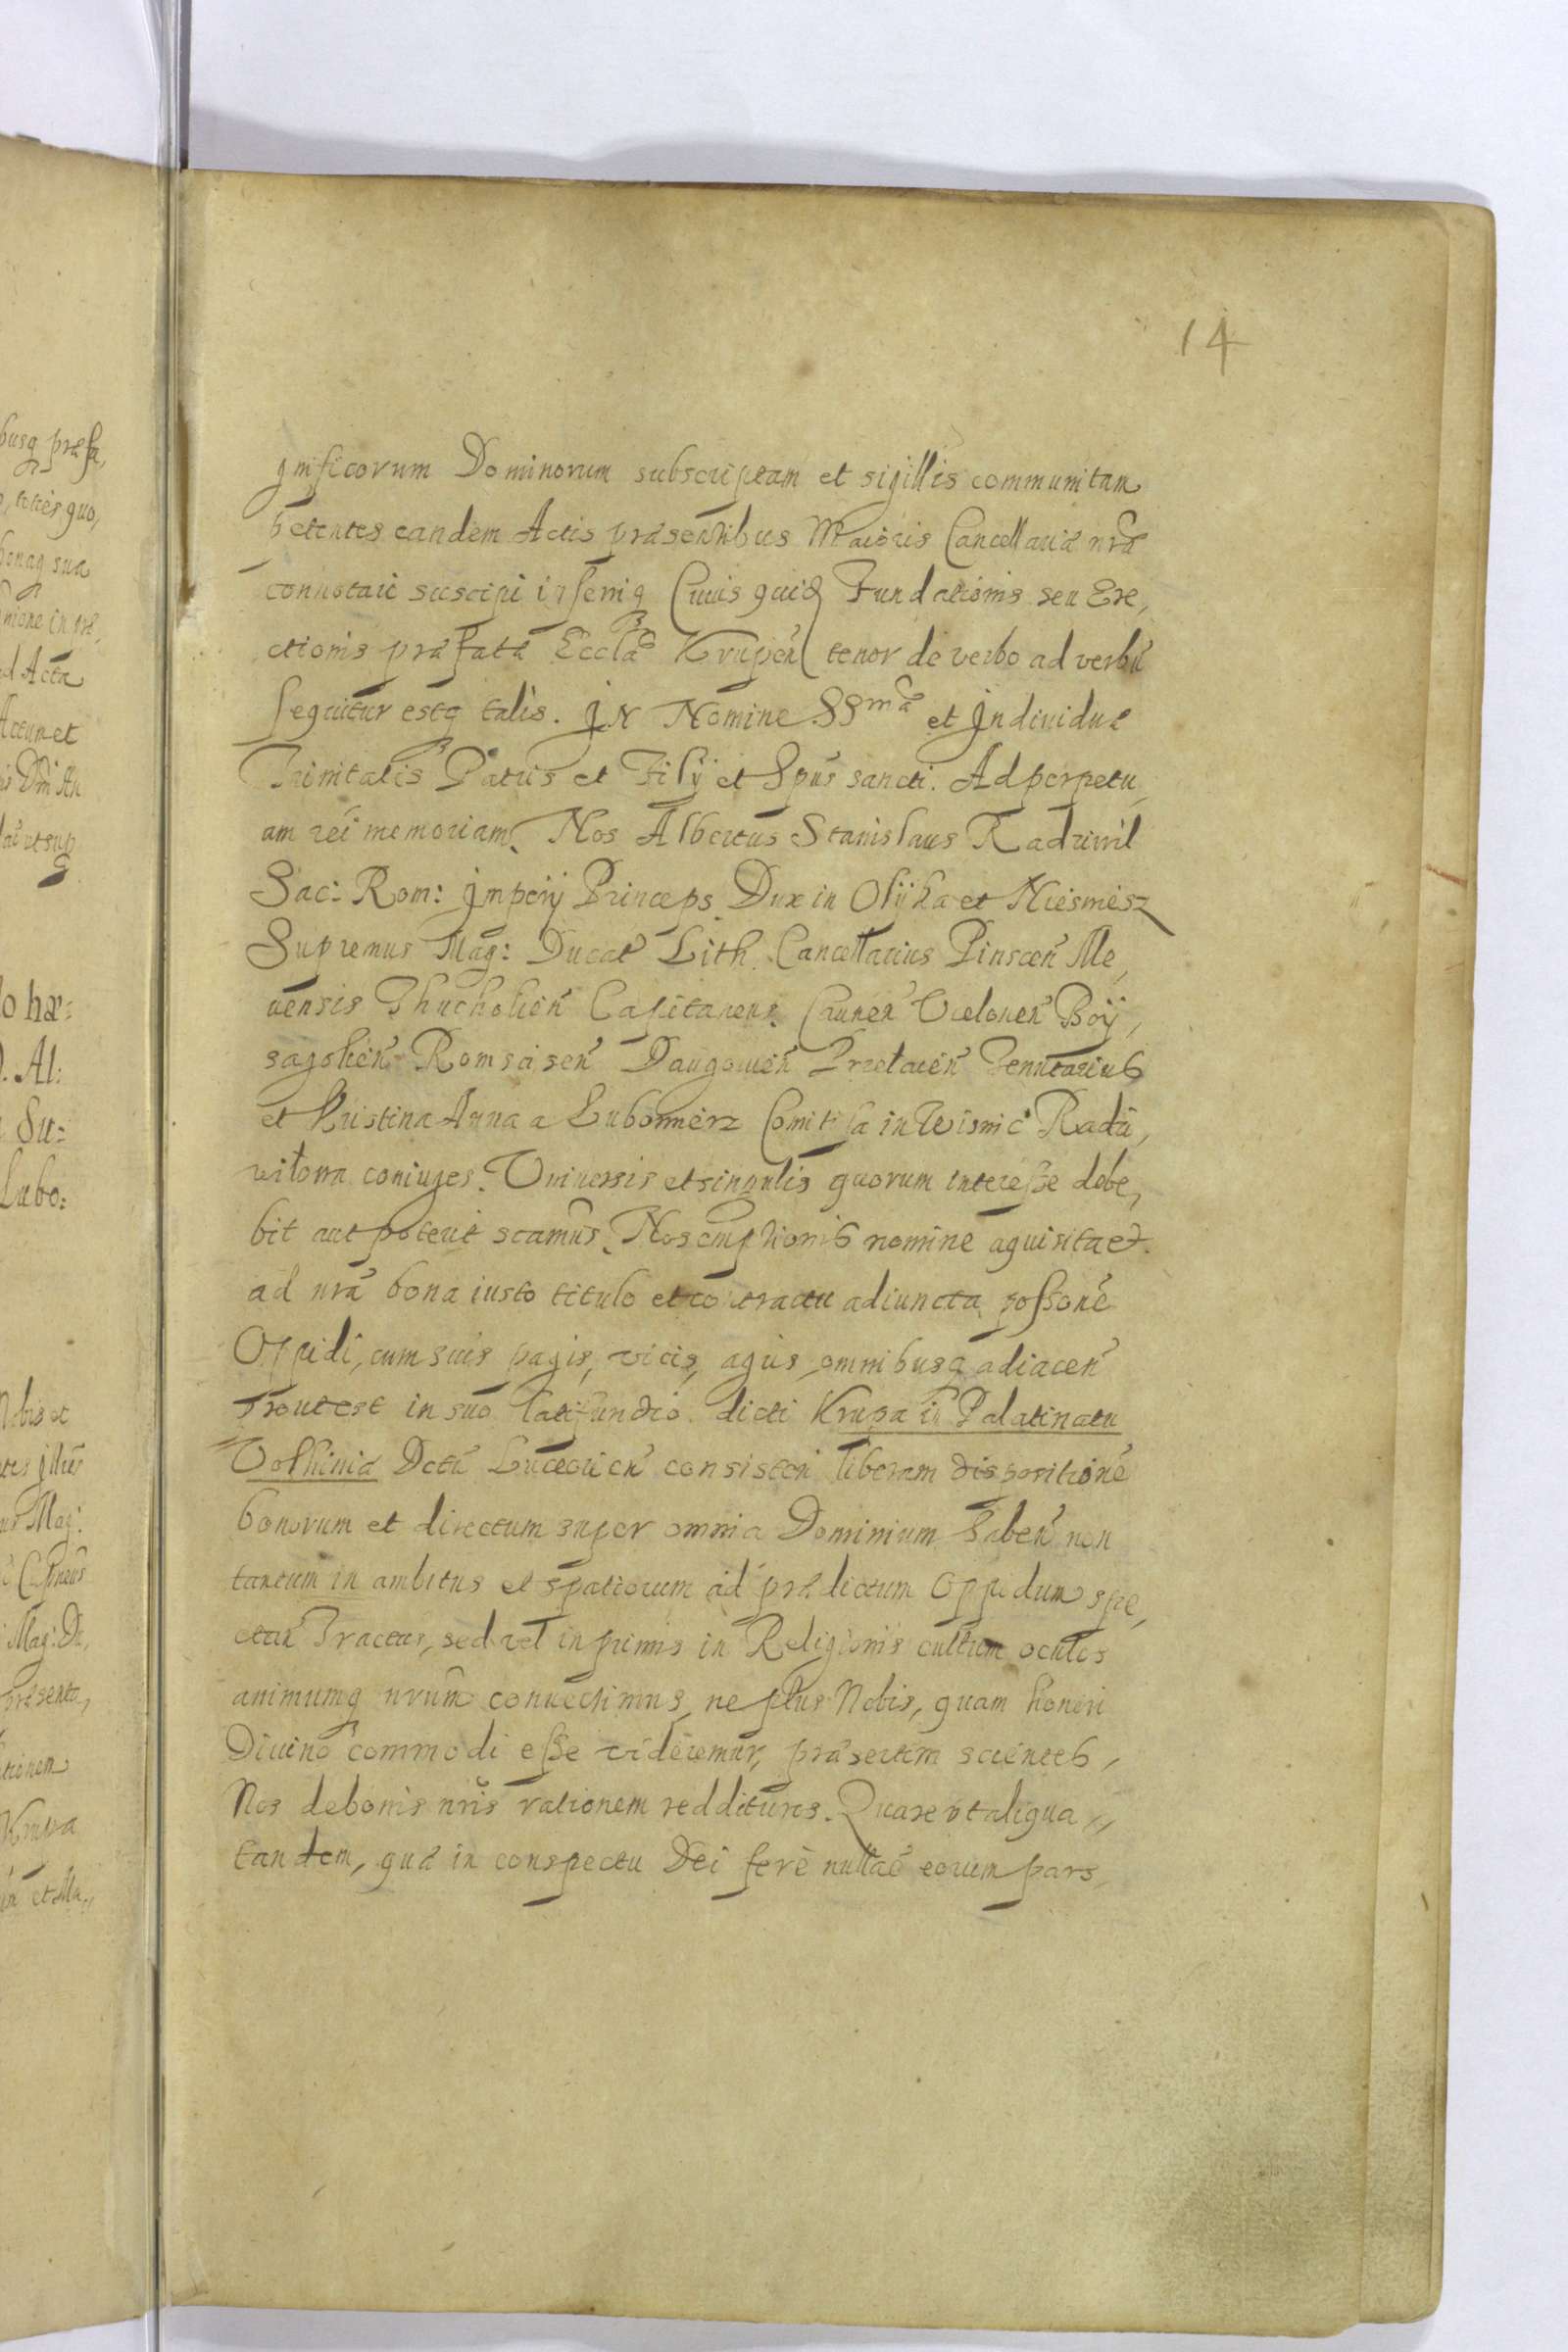 14
gnificorum Dominorum subscriptam et sigillis communitam
petentes eandem Actis præsentibus Maioris Cancellariæ nr̃æ
connotari suscipi inseriq Cuius quid Fundationis seu Ere,
ctionis præfatæ Ecclæ Krupen̄ tenor de verbo ad verbū
sequitur estq talis. IN Nomine SSmæ et Individuæ
Trinitatis Patris et Filij et Spūs sancti. Ad perpetu,
am rei memoriam. Nos Albertus Stanislaus Radziwil
Sac: Rom: Imperij Princeps Dux in Olÿka et Niesmiesz
Supremus Mag: Ducat Lith. Cancellarius Pinscen̄ Me,
uensis Thucholien̄ Capitaneus. Caunen̄ Vielonen̄ Boÿ,
sagolien̄ Romsisen̄ Daugowien̄ Tenutarius
et Kristina Anna a Lubomierz Comitissa in Wisnic Radzi,
wiłowa coniuges. Vniuersis et singulis quorum interesse debe,
bit aut poterit scamus. Nos emptionis nomine aquisita et
ad nrā bona iusto titulo et cōtractu adiuncta possonē
Oppidi, cum suis pagis, vicis, agris, omnibusq adiacen̄
Prout est in suo latifundio dicti Krupa in Palatinatu
Volhiniæ Dctū Luceorien̄ consisten̄ liberam dispositionē
bonorum et directum super omnia Dominium haben̄ non
tantum in ambitus et spatiorum ad prædictum Oppidum spe,
ctan̄ Tractus, sed vel inprimis in Religionis cultum oculos
animumq nrūm conuertimus, ne plus Nobis, quam honori
Diuino commodi esse videremur, præsertim scientes,
Nos de bonis nr̄is rationem reddituros. Quare vt aliqua,,
tandem, quæ in conspectu Dei ferè nulla ē eorum pars